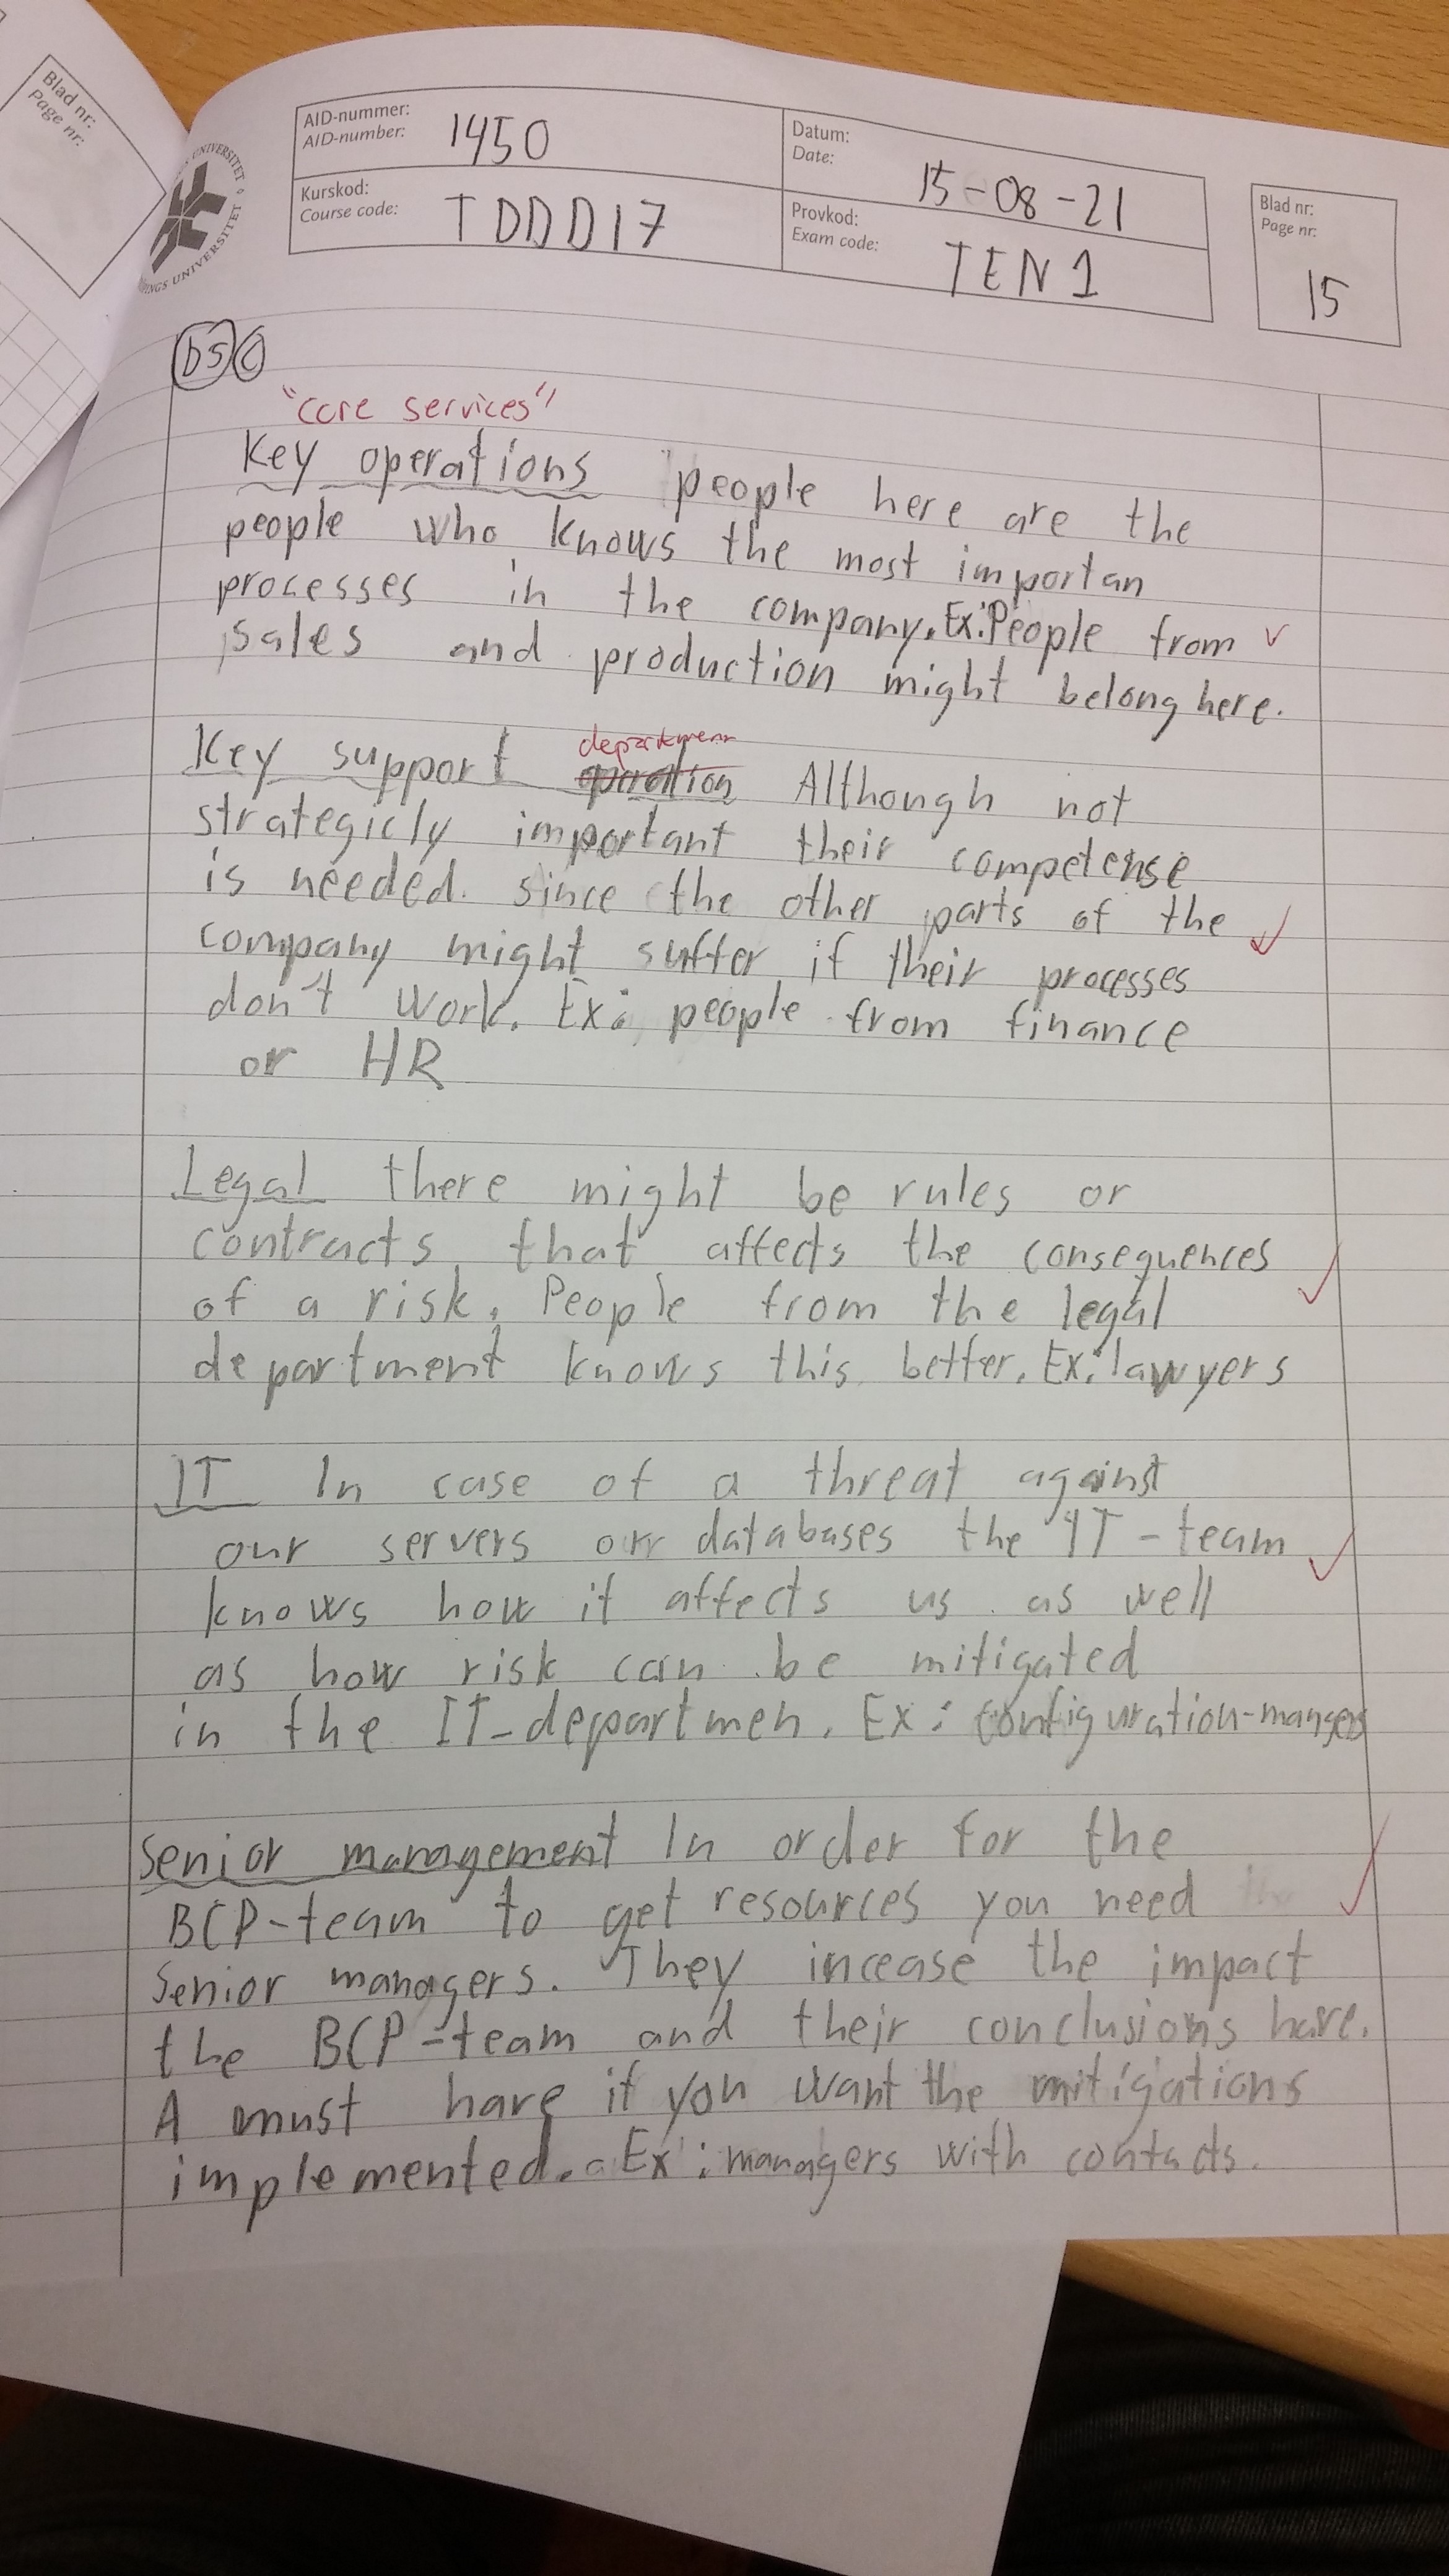 Blad nr:
Page nr:
UNIVERSITET
INGS UNIVERSITET
AID-nummer:
AID-number:
1450
Datum:
Date:
15-08-21
Kurskod:
Course code:
TDDD17
Provkod:
Exam code:
TEN1
Blad nr:
Page nr:
15
b5 c
"core services"
Key operations people here are the
people who knows the most importan
processes in the company. Ex: People from
sales and production might belong here.
department
Key support operation Although not
strategicly important their competense
is needed. since the other parts of the
company might suffer if their processes
don't work. Ex: people from finance
or HR
Legal there might be rules or
contracts that affects the consequences
of a risk. People from the legal
department knows this better. Ex: lawyers
IT In case of a threat against
our servers orr databases the IT-team
knows how it affects us as well
as how risk can be mitigated
in the IT-departmen. Ex: configuration-mangers
Senior management In order for the
BCP-team to get resources you need
senior managers. They incease the impact
the BCP-team and their conclusions have.
A must have if you want the mitigations
implemented. Ex: managers with contacts.